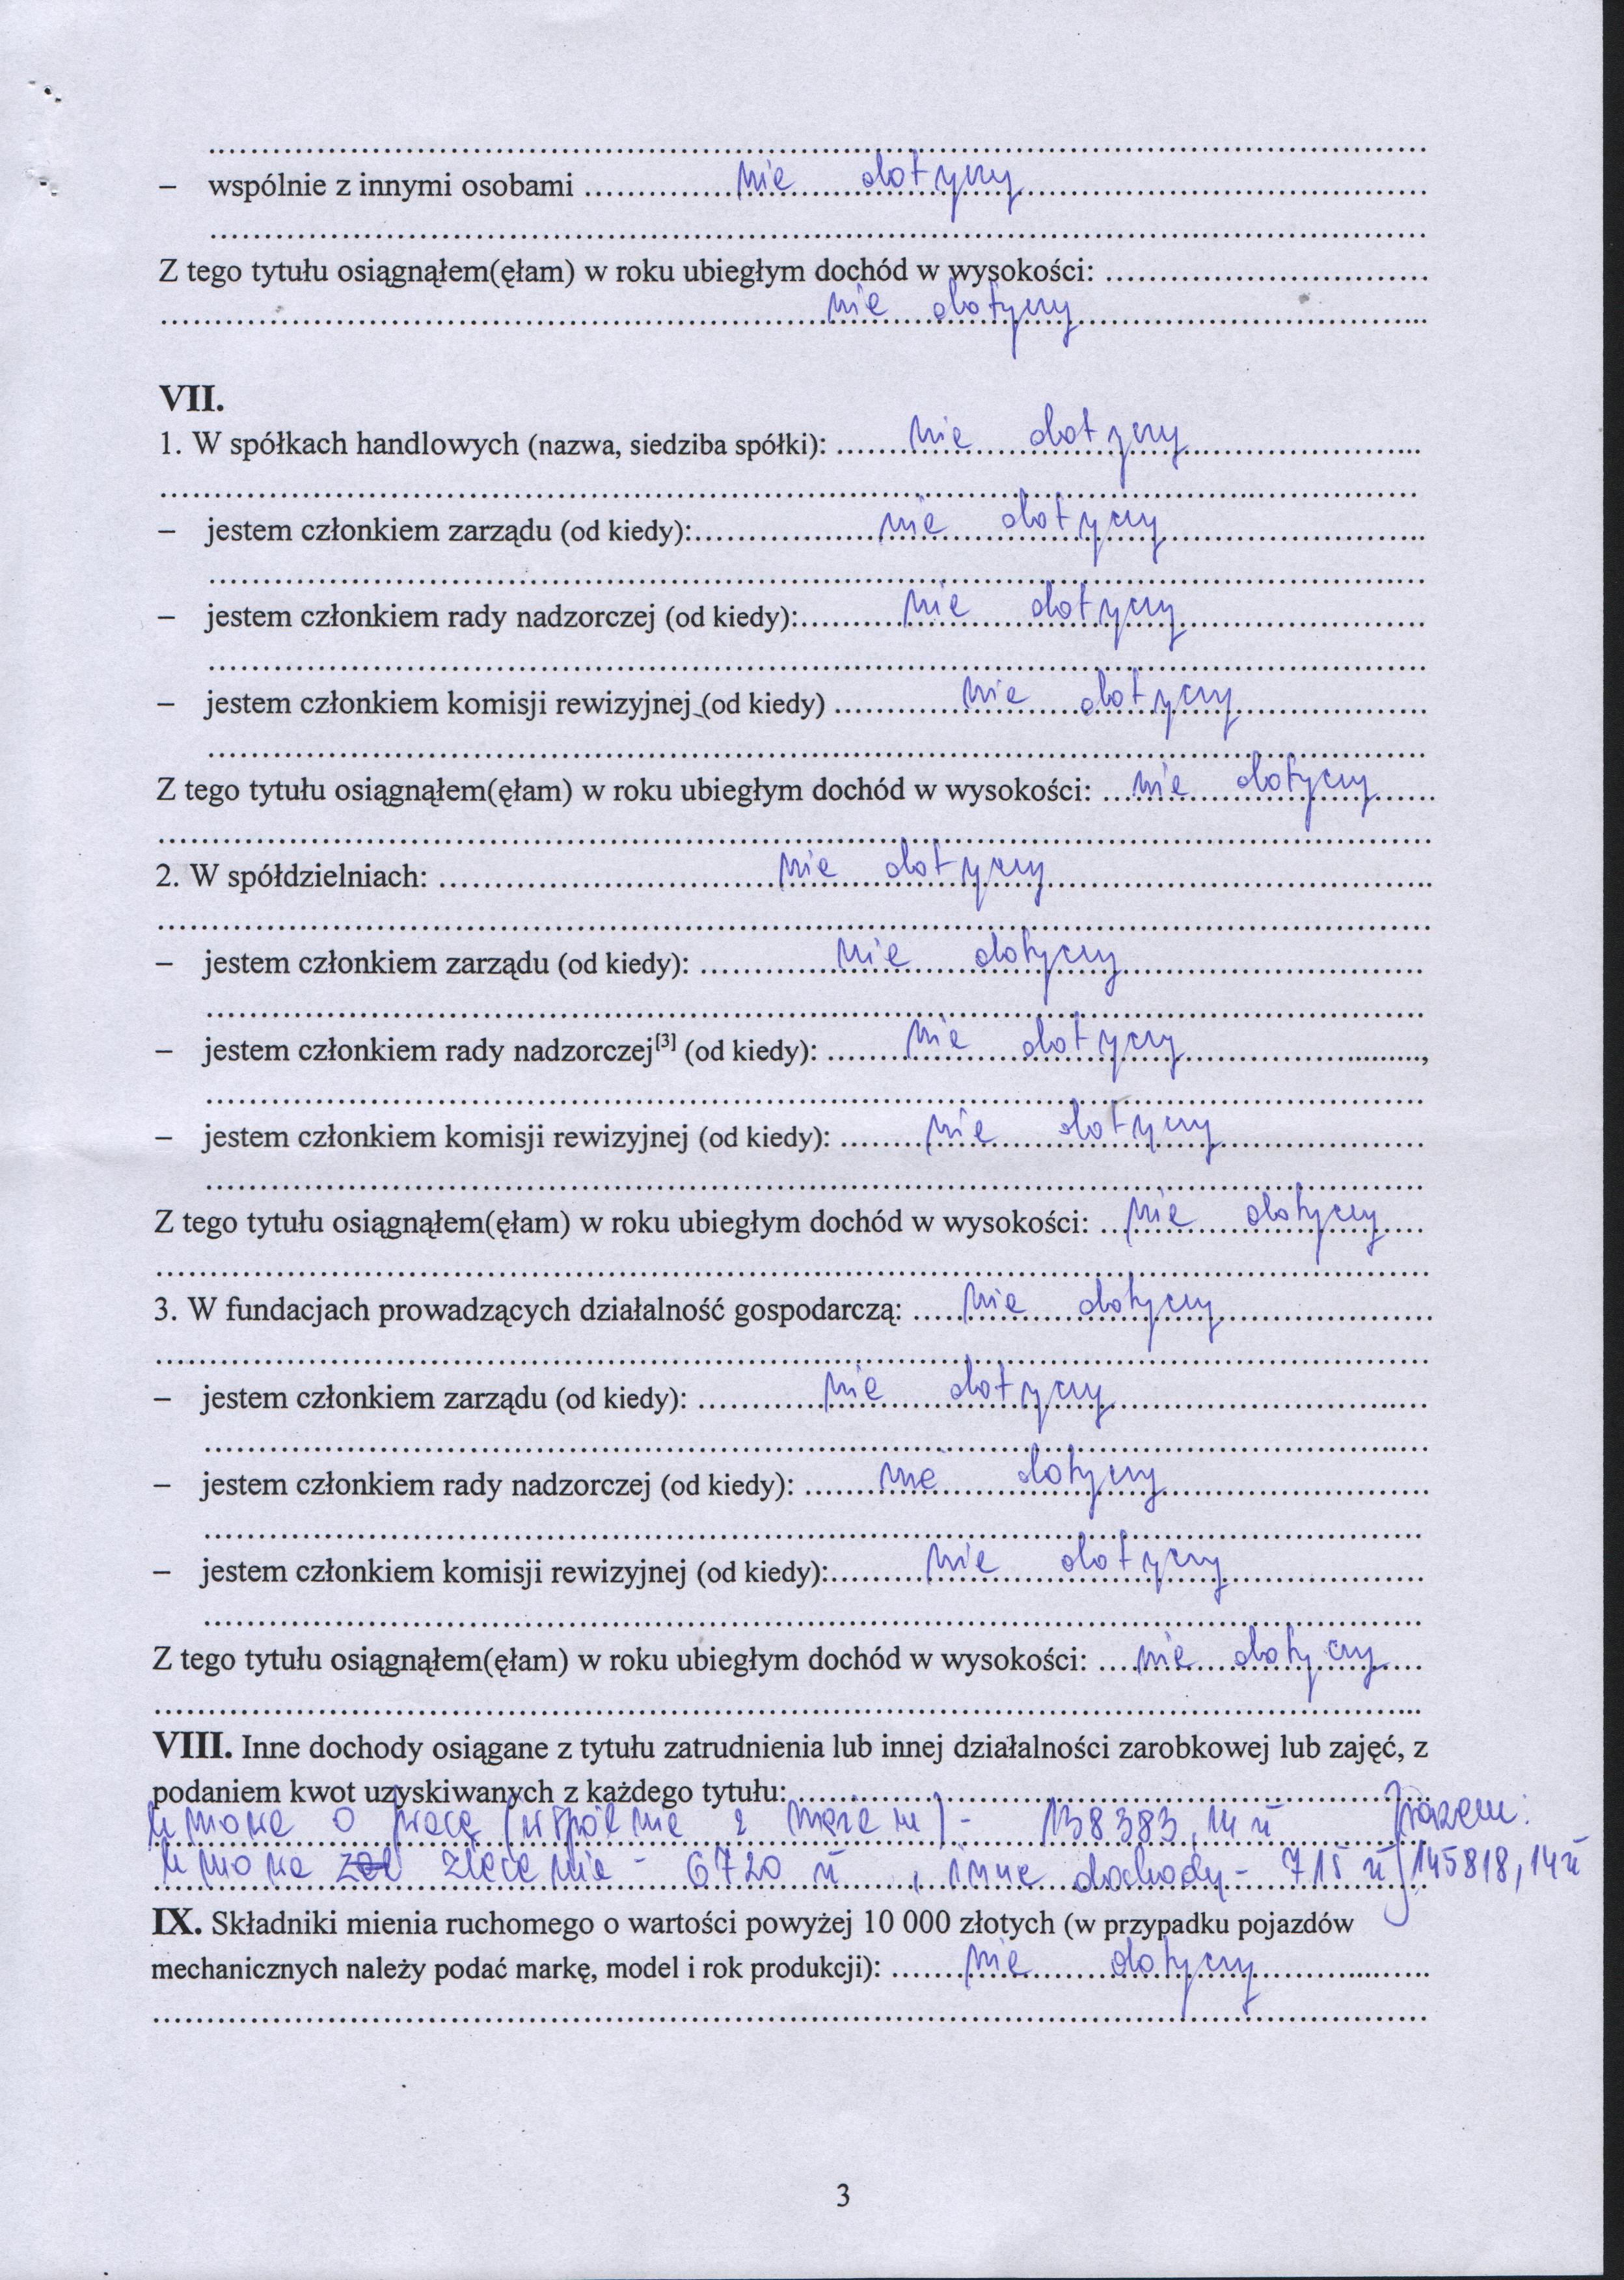 – wspólnie z innymi osobami nie dotyczy
Z tego tytułu osiągnąłem(ęłam) w roku ubiegłym dochód w wysokości:
nie dotyczy
VII.
1. W spółkach handlowych (nazwa, siedziba spółki): nie dotyczy
– jestem członkiem zarządu (od kiedy): nie dotyczy
– jestem członkiem rady nadzorczej (od kiedy): nie dotyczy
– jestem członkiem komisji rewizyjnej (od kiedy) nie dotyczy
Z tego tytułu osiągnąłem(ęłam) w roku ubiegłym dochód w wysokości: nie dotyczy
2. W spółdzielniach: nie dotyczy
– jestem członkiem zarządu (od kiedy): nie dotyczy
– jestem członkiem rady nadzorczej[3] (od kiedy): nie dotyczy,
– jestem członkiem komisji rewizyjnej (od kiedy): nie dotyczy
Z tego tytułu osiągnąłem(ęłam) w roku ubiegłym dochód w wysokości: nie dotyczy
3. W fundacjach prowadzących działalność gospodarczą: nie dotyczy
– jestem członkiem zarządu (od kiedy): nie dotyczy
– jestem członkiem rady nadzorczej (od kiedy): nie dotyczy
– jestem członkiem komisji rewizyjnej (od kiedy): nie dotyczy
Z tego tytułu osiągnąłem(ęłam) w roku ubiegłym dochód w wysokości: nie dotyczy
VIII. Inne dochody osiągane z tytułu zatrudnienia lub innej działalności zarobkowej lub zajęć, z
podaniem kwot uzyskiwanych z każdego tytułu:
umowa o pracę (wspólnie z mężem) - 138383,14 zł razem:
umowa zlecenie - 6720 zł, inne dochody - 715 zł 145818,14 zł
IX. Składniki mienia ruchomego o wartości powyżej 10 000 złotych (w przypadku pojazdów
mechanicznych należy podać markę, model i rok produkcji): nie dotyczy
3